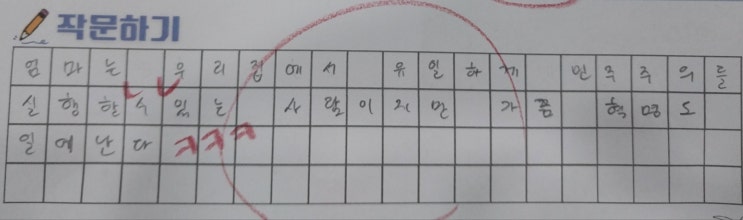 작문하기
엄마는 우리집에서 유일하게 민주주의를
실행할수 있는 사람이지만 가끔 혁명도
일어난다 ㅋㅋㅋ